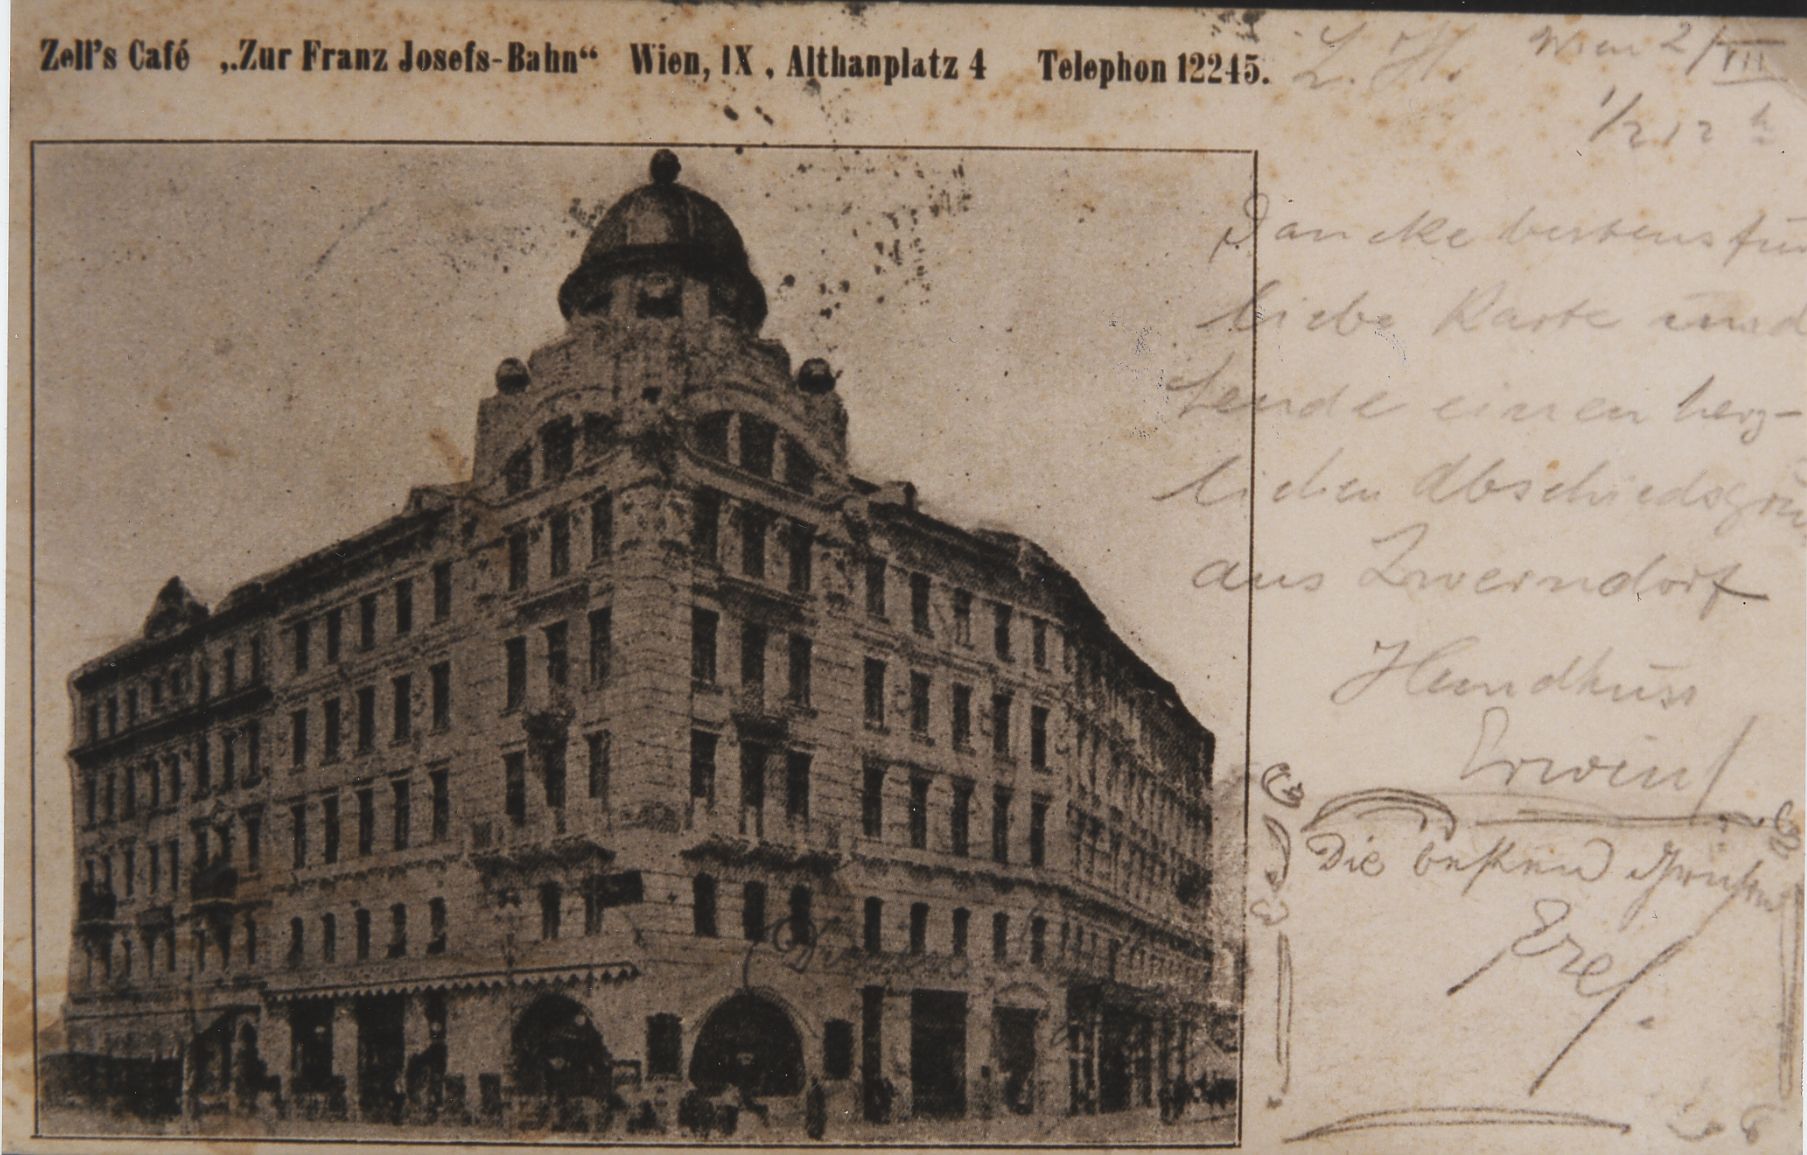 Zell's Café „Zur Franz Josefs-Bahn“ Wien, IX, Althanplatz 4 Telephon 12245.
L. H. Wien 2/VIII
1/2 12 h
Dancke bestens für
liebe Karte und
sende einen herz-
lichen Abschiedsgruss
aus Zwerndorf
Handkuss
Erwin
Die besten Grüsse